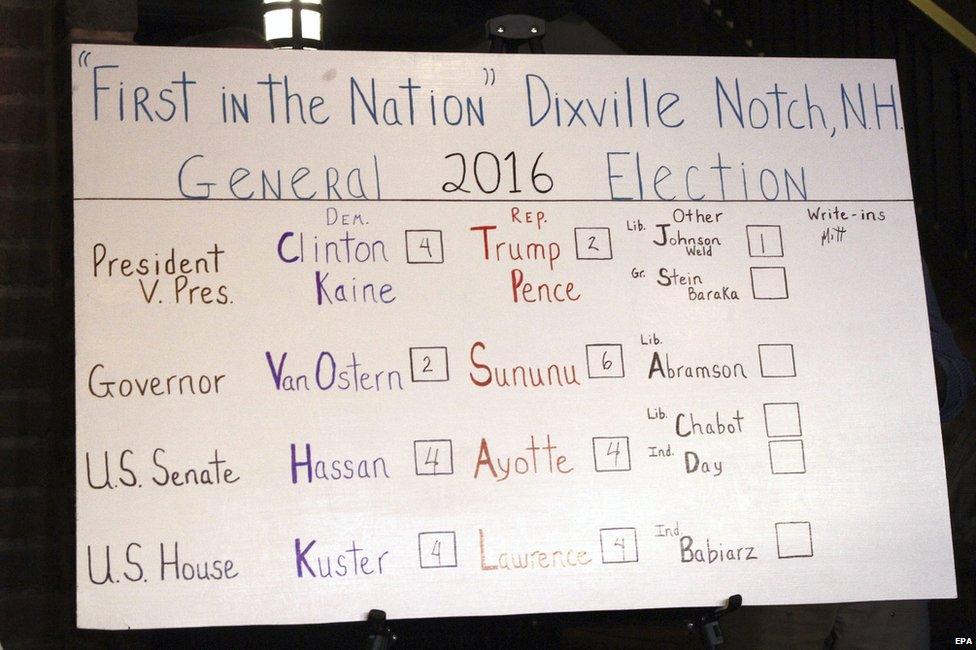 "First in the Nation" Dixville Notch, N.H.
General 2016 Election
Dem. Rep. Other Write-ins
President Clinton 4 Trump 2 Lib. Johnson 1 Mitt
Weld
V. Pres. Kaine Pence Gr. Stein
Baraka
Governor Van Ostern 2 Sununu 6 Lib. Abramson
Lib. Chabot
U.S. Senate Hassan 4 Ayotte 4 Ind. Day
U.S. House Kuster 4 Lawrence 4 Ind Babiarz
EPA